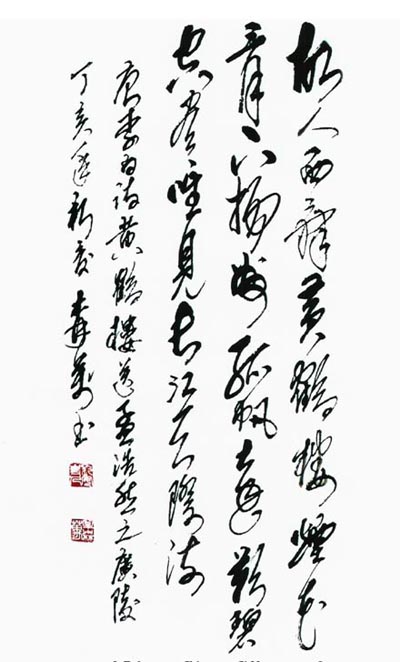 故人西辭黃鶴樓煙花
三月下揚州孤帆遠影碧
空盡唯見長江天際流
唐李白詩黃鶴樓送孟浩然之廣陵
丁亥新春